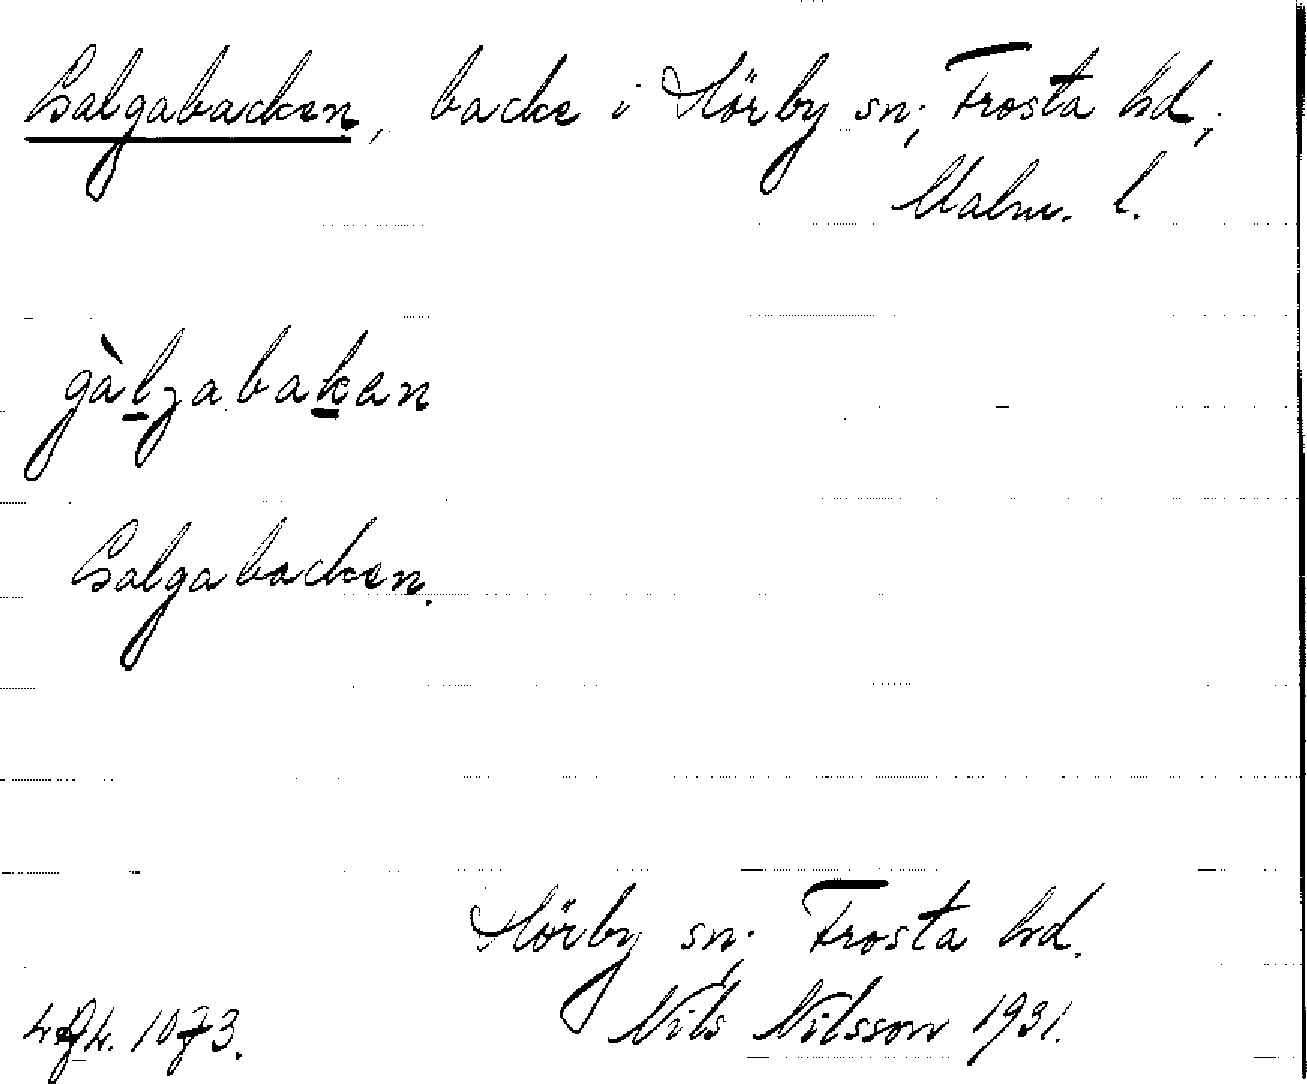 Galgabacken, backe i Hörby sn; Frosta hd,
Malm. l.
gàlgabaken
Galgabacken.
Hörby sn; Frosta hd.
Nils Nilsson 1931.
1073.